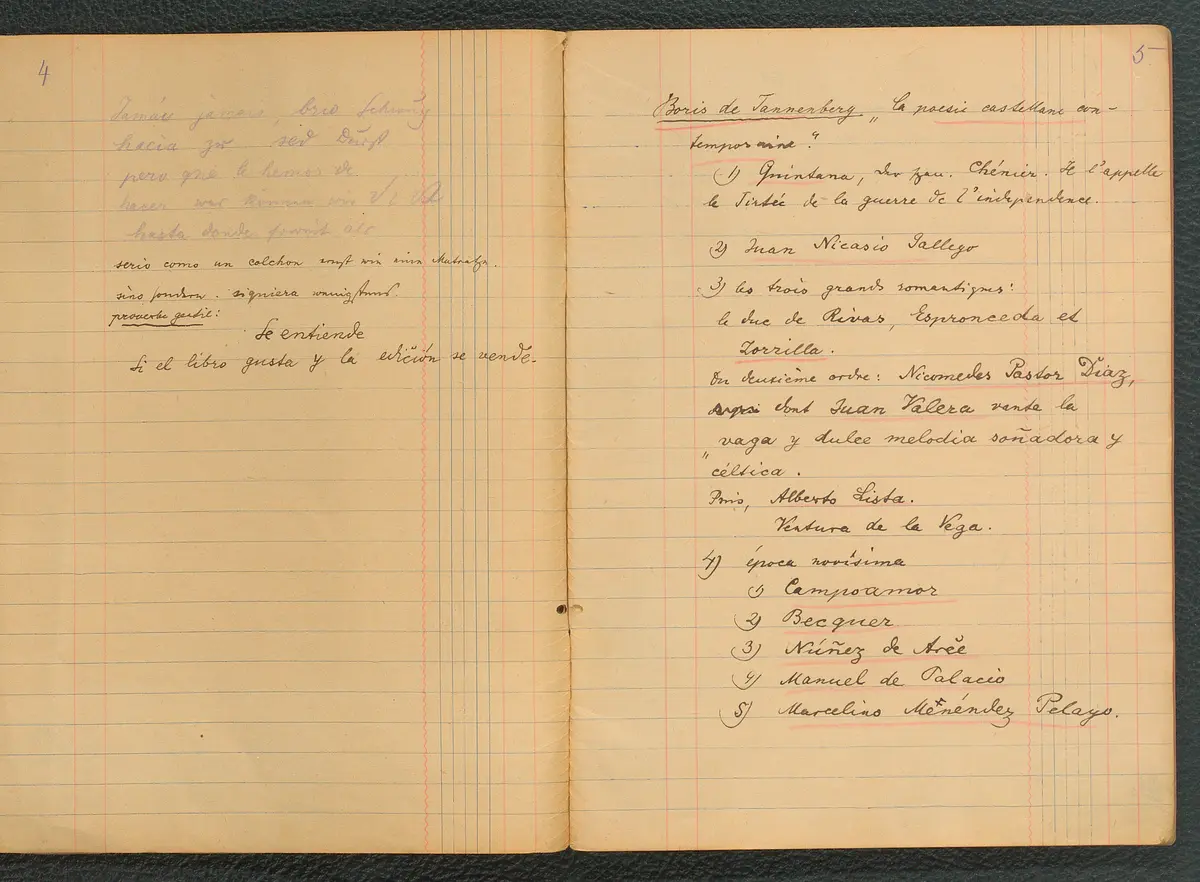 4
jamais
hacia zu seid Durst
pero qué le hemos de
hacer was können wir
hasta donde
serio como un colchon ernst wie eine Matratze.
sino sondern. siquiera wenigstens.
proverbe gentil:
Se entiende
Si el libro gusta y la edición se vende.
5
Boris de Tannenberg „la poesie castellane con-
temporaine“
1) Quintana, Chénier. Je l'appelle
le Tirtée de la guerre de l'indépendence.
2) Juan Nicasio Gallego
3) les trois grands romantiques:
le duc de Rivas, Espronceda et
Zorrilla.
Du deuxième ordre: Nicomedes Pastor Díaz,
dont Juan Valera vante la
vaga y dulce melodia soñadora y
„céltica.
Puis, Alberto Lista.
Ventura de la Vega.
4) época novísima
1) Campoamor
2) Becquer
3) Núñez de Arce
4) Manuel de Palacio
5) Marcelino Menéndez Pelayo.